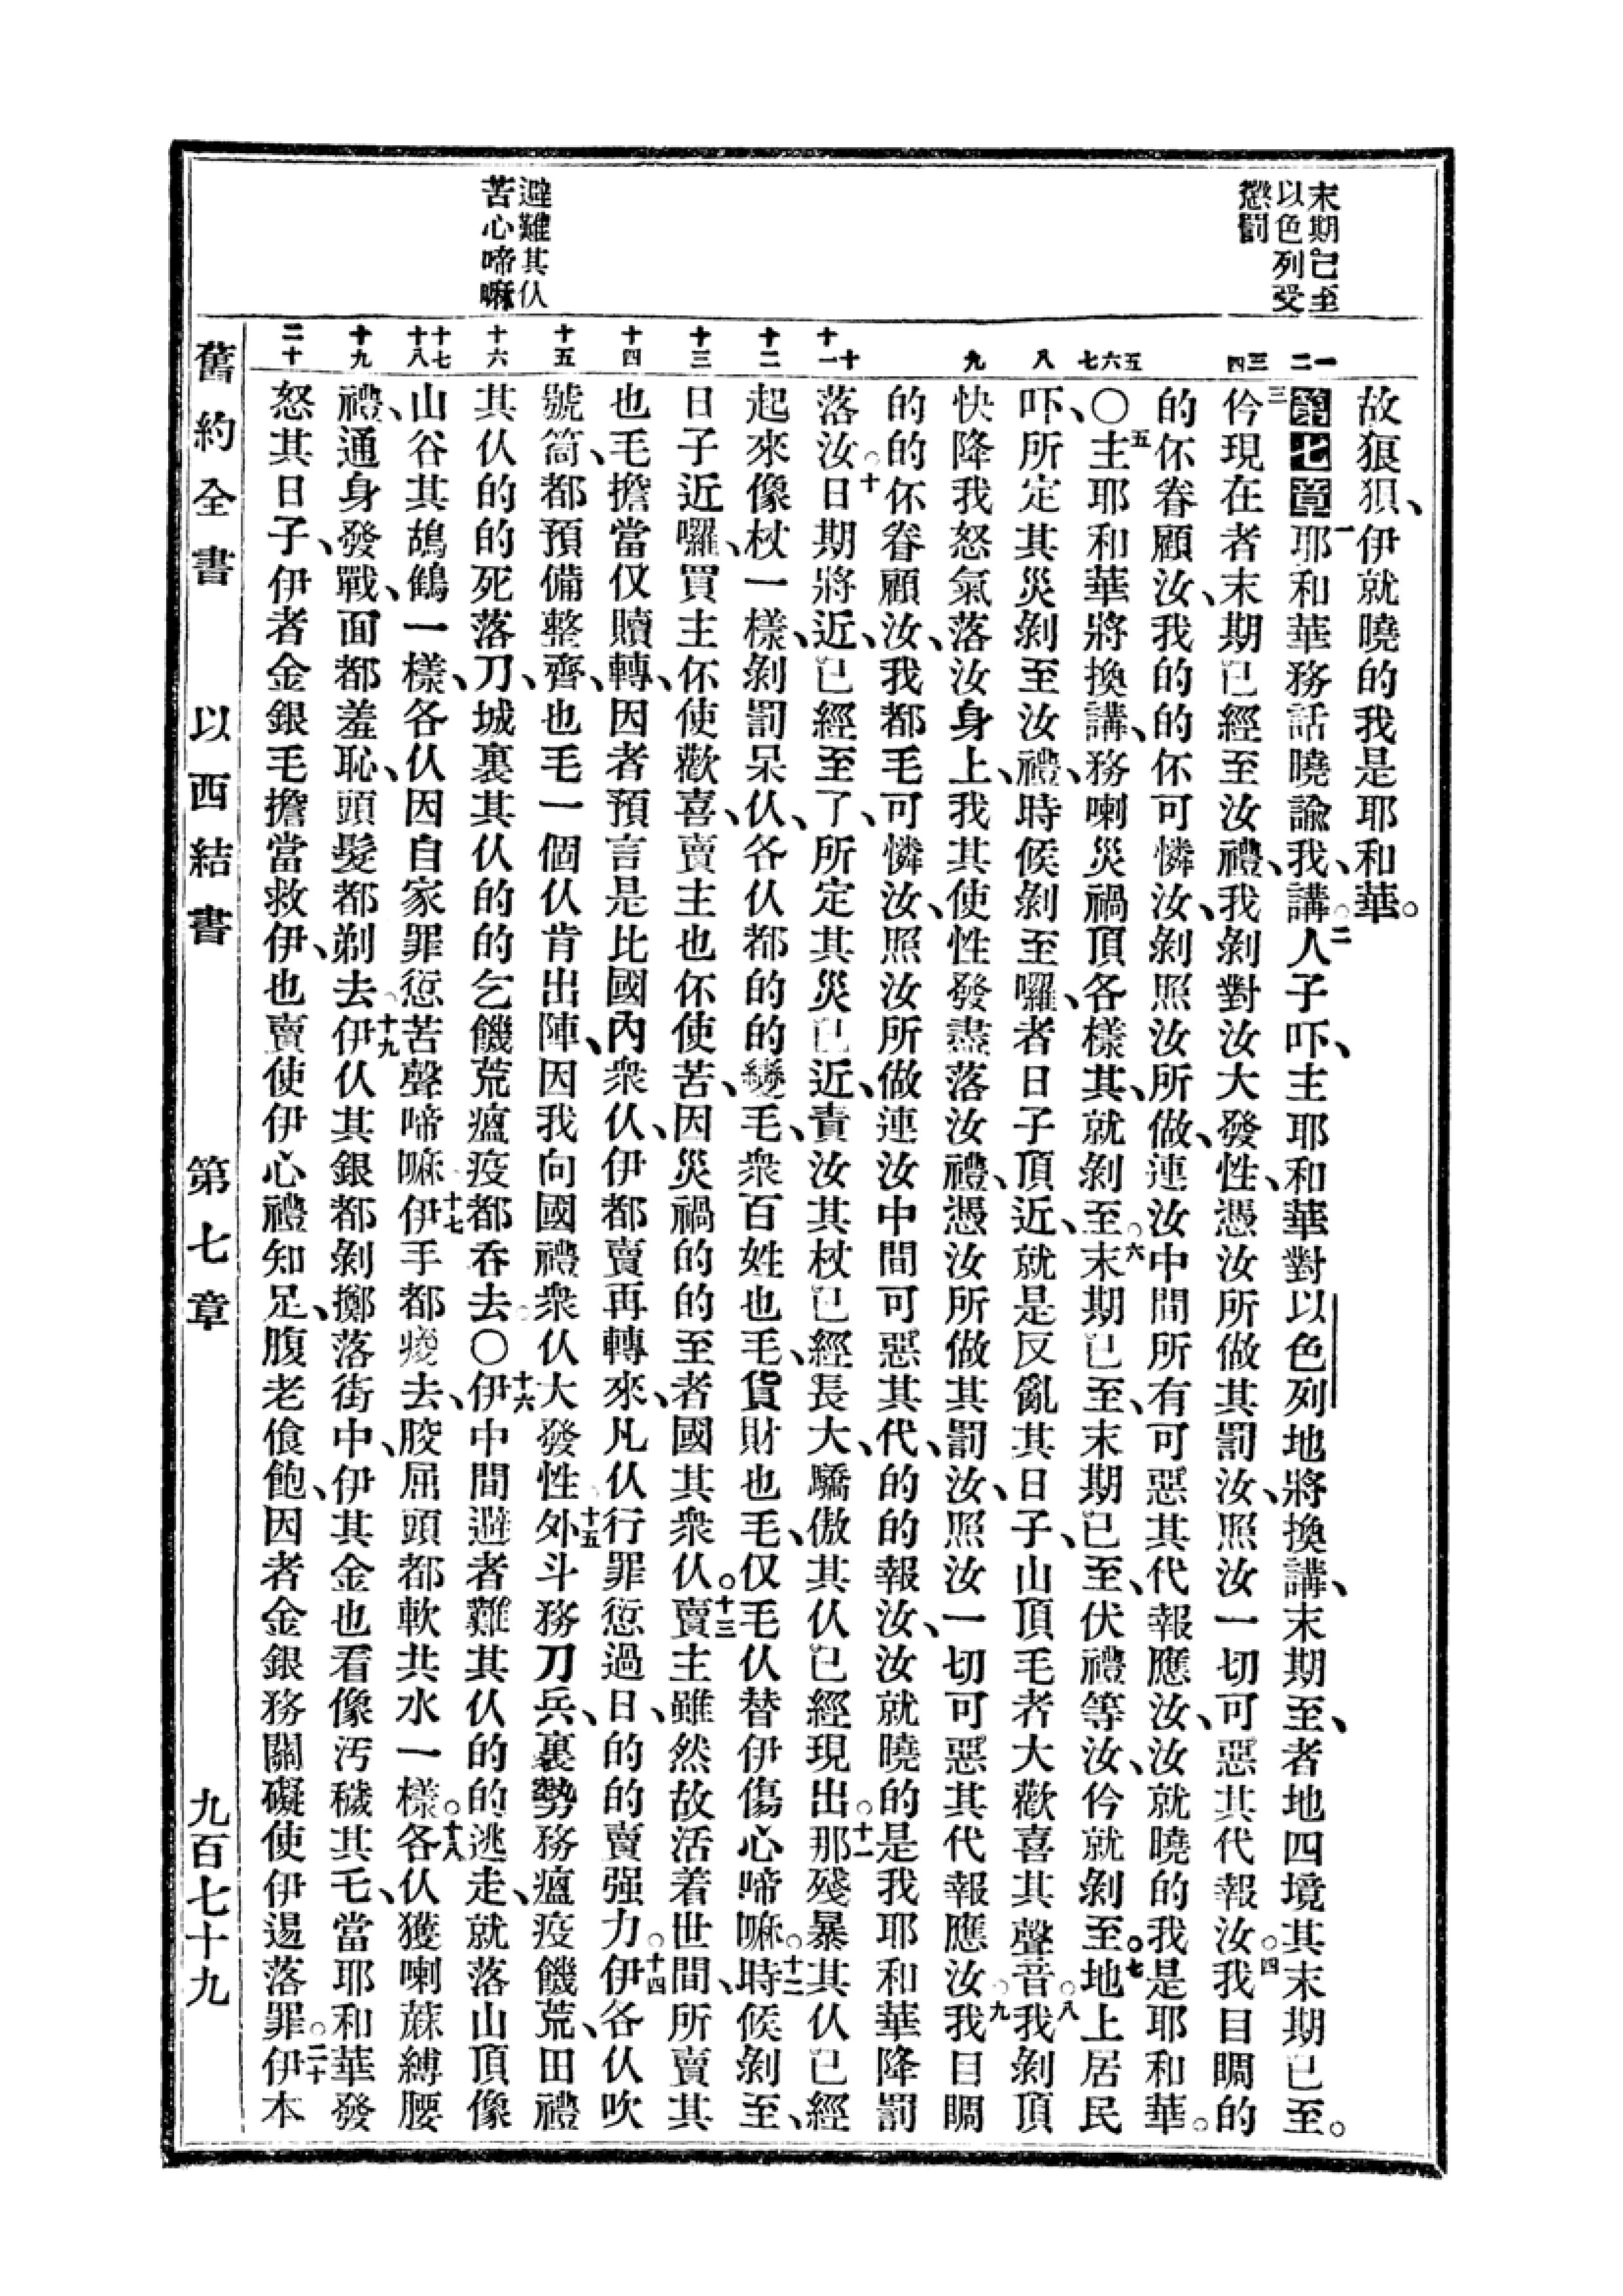 末期已至
以色列受
懲罰
避難其仈
苦心啼嘛
一 二
三 四
五 六 七
八
九
十 十一
十二
十三
十四
十五
十六
十七 十八
十九
二十
故狼狽、伊就曉的我是耶和華。
第七章 一耶和華務話曉諭我、講。二人子吓、主耶和華對以色列地將換講、末期至、者地四境其末期已至。
三仱現在者末期已經至汝禮、我剝對汝大發性、憑汝所做其罰汝、照汝一切可惡其代報汝。四我目睭的
的伓眷顧汝、我的的伓可憐汝、剝照汝所做、連汝中間所有可惡其代報應汝、汝就曉的我是耶和華。
〇五主耶和華將換講、務喇災禍頂各樣其、就剝至。六末期已至、末期已至、伏禮等汝、仱就剝至。七地上居民
吓、所定其災剝至汝禮、時候剝至囉、者日子頂近、就是反亂其日子、山頂毛者大歡喜其聲音。八我剝頂
快降我怒氣落汝身上、我其使性發盡落汝禮、憑汝所做其罰汝、照汝一切可惡其代報應汝。九我目睭
的的伓眷顧汝、我都毛可憐汝、照汝所做連汝中間可惡其代、的的報汝、汝就曉的是我耶和華降罰
落汝。十日期將近、已經至了、所定其災已近、責汝其杖已經長大、驕傲其仈已經現出。十一那殘暴其仈已經
起來像杖一樣、剝罰呆仈、各仈都的的變毛、衆百姓也毛、貨財也毛、仅毛仈替伊傷心啼嘛。十二時候剝至、
日子近囉、買主伓使歡喜、賣主也伓使苦、因災禍的的至者國其衆仈。十三賣主雖然故活着世間、所賣其
也毛擔當仅贖轉、因者預言是比國內衆仈、伊都賣再轉來、凡仈行罪愆過日、的的賣强力。十四伊各仈吹
號筒、都預備整齊、也毛一個仈肯出陣、因我向國禮衆仈大發性。十五外斗務刀兵、裏勢務瘟疫饑荒、田禮
其仈的的死落刀、城裏其仈的的乞饑荒瘟疫都吞去。〇十六伊中間避者難其仈的的逃走、就落山頂像
山谷其鴣鶴一樣、各仈因自家罪愆苦聲啼嘛。十七伊手都痠去、骹屈頭都軟共水一樣。十八各仈獲喇蔴縛腰
禮、通身發戰、面都羞恥、頭髮都剃去。十九伊仈其銀都剝擲落街中、伊其金也看像汚穢其毛、當耶和華發
怒其日子、伊者金銀毛擔當救伊、也賣使伊心禮知足、腹老飡飽、因者金銀務關礙使伊逿落罪。二十伊本
舊約全書 以西結書 第七章 九百七十九